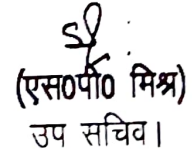 (एस0पी0 मिश्र)
उप सचिव।